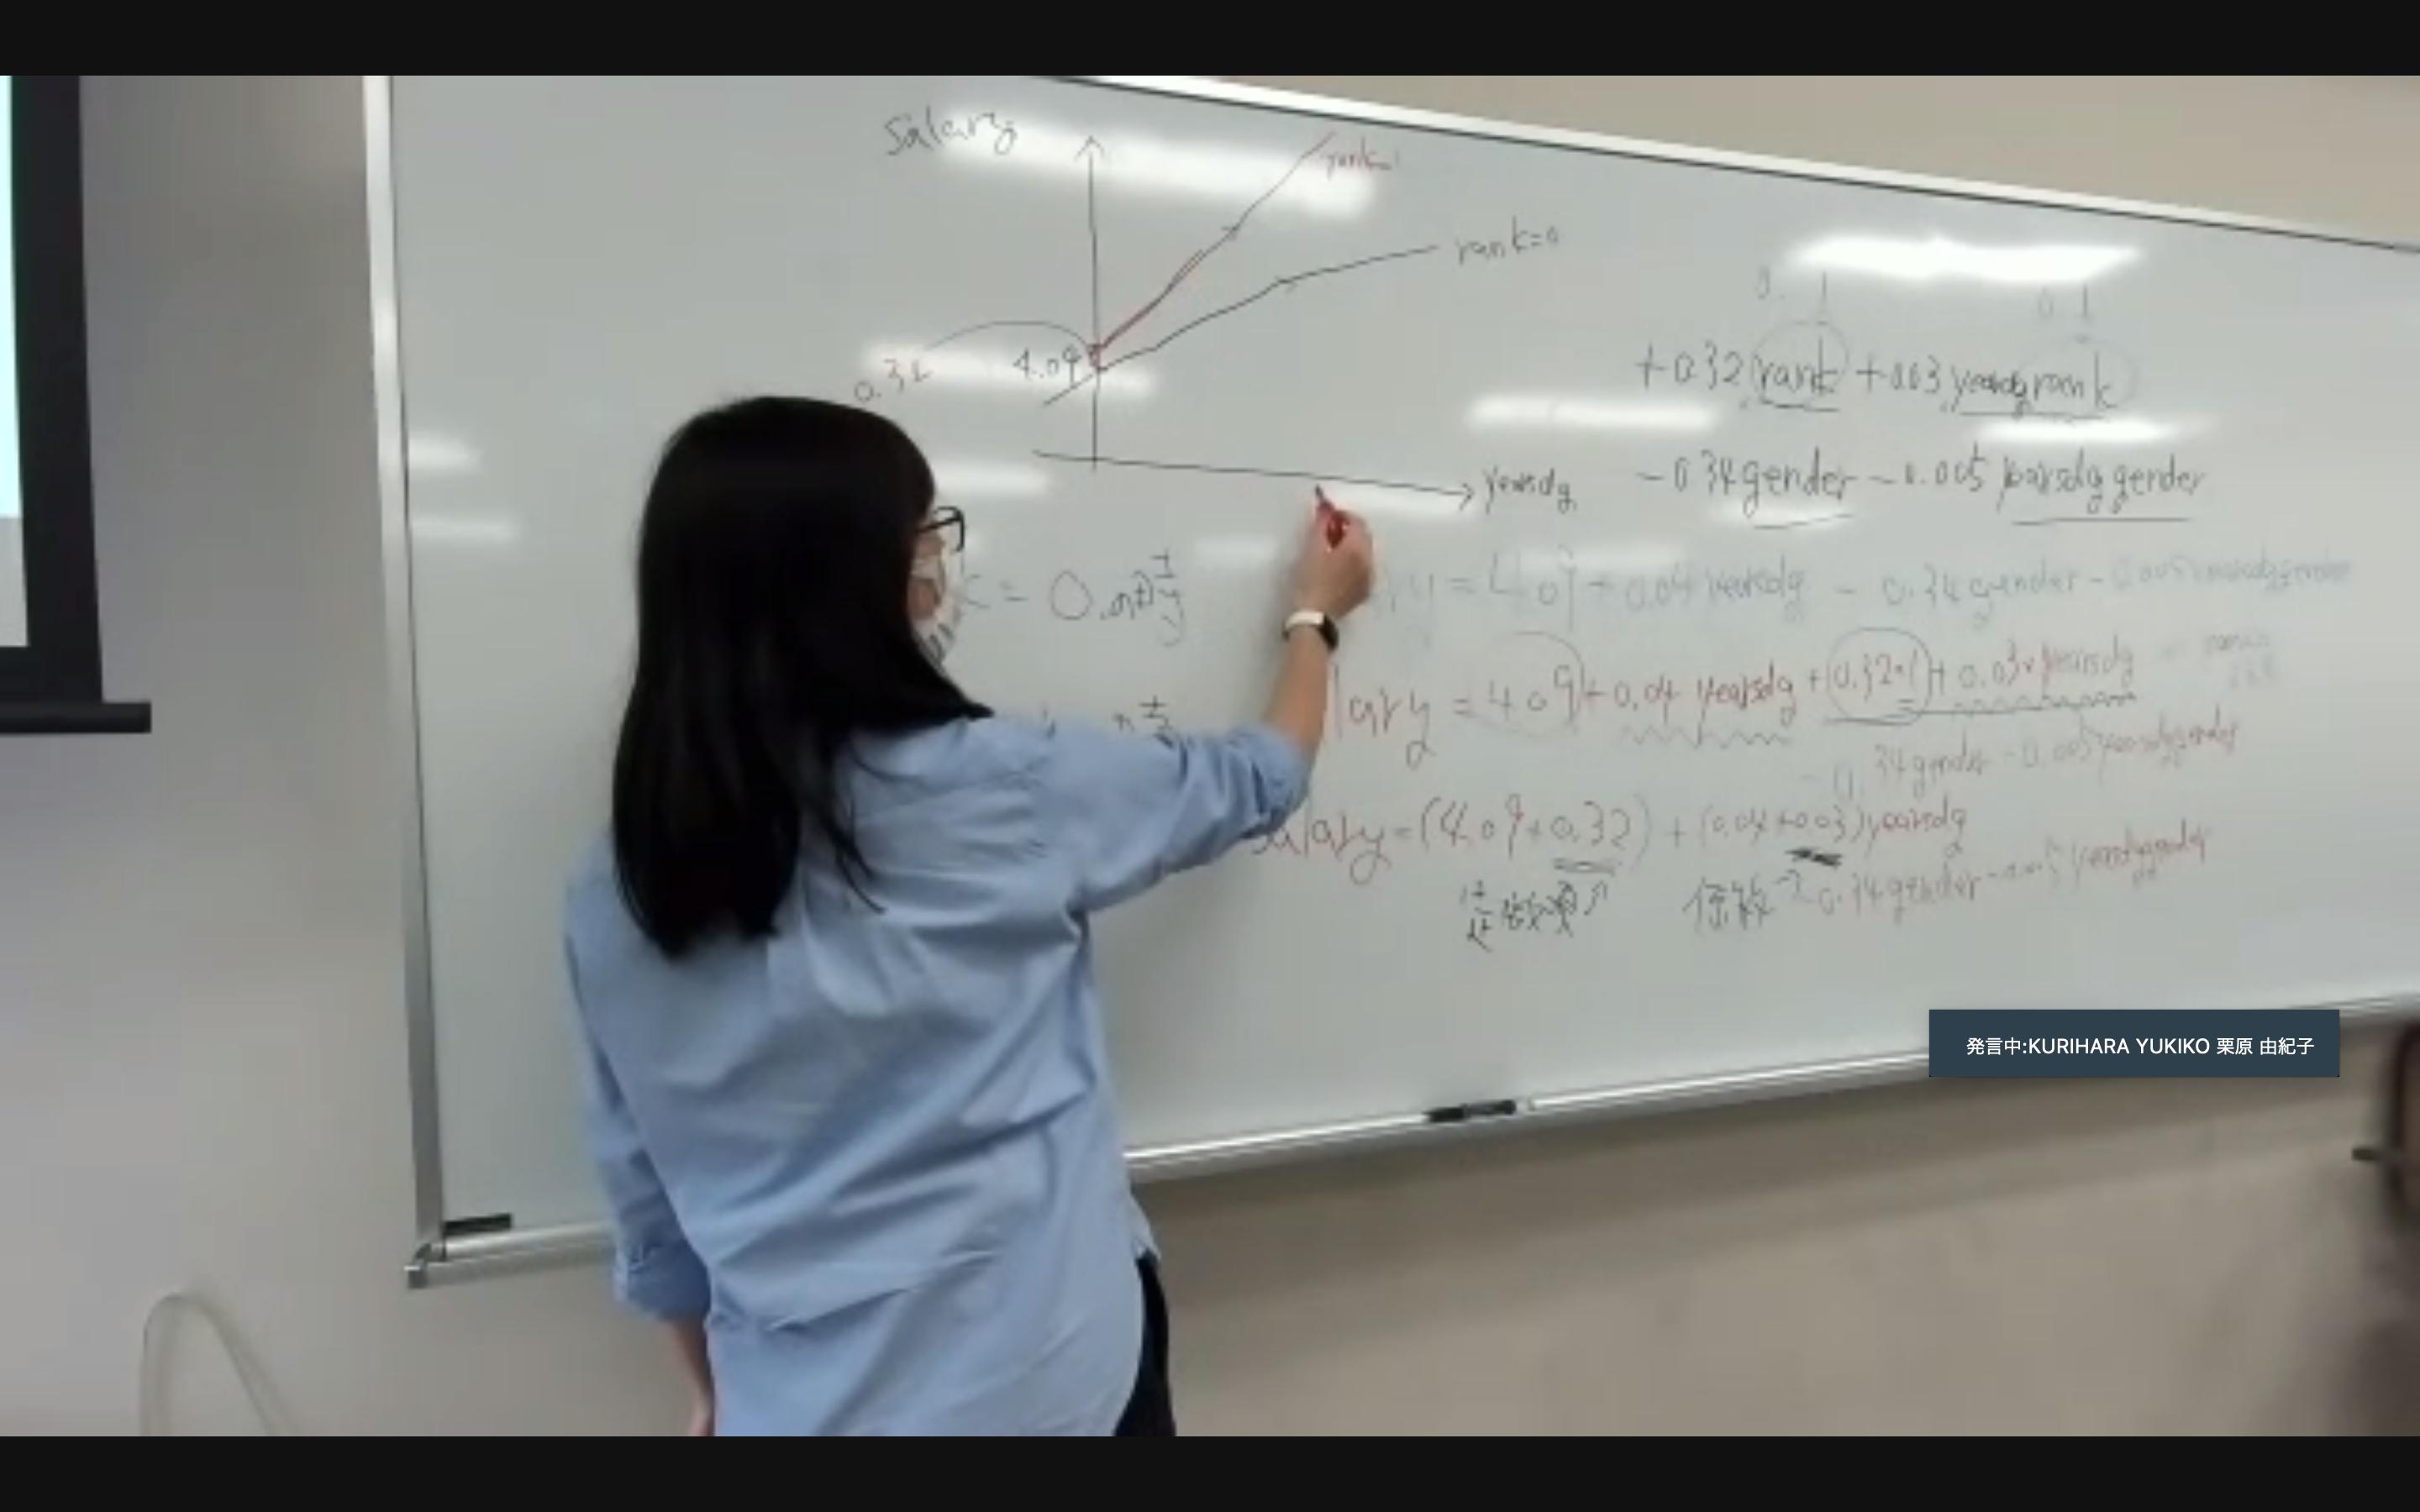 salary
rank=1
rank=0
0.32
4.09
yearsdg
0.1 0.1
+0.32 rank +0.03 yearsdg rank
-0.34 gender -0.005 yearsdg gender
= 0のとき
y = 4.09 + 0.04 yearsdg - 0.34 gender - 0.005 yearsdg gender
lary = 4.09 + 0.04 yearsdg + 0.32×1 + 0.03×yearsdg
-0.34 gender - 0.005 yearsdg gender
salary = (4.09+0.32) + (0.04+0.03) yearsdg
定数項 係数 -0.34 gender -0.005 yearsdg gender
発言中:KURIHARA YUKIKO 栗原 由紀子